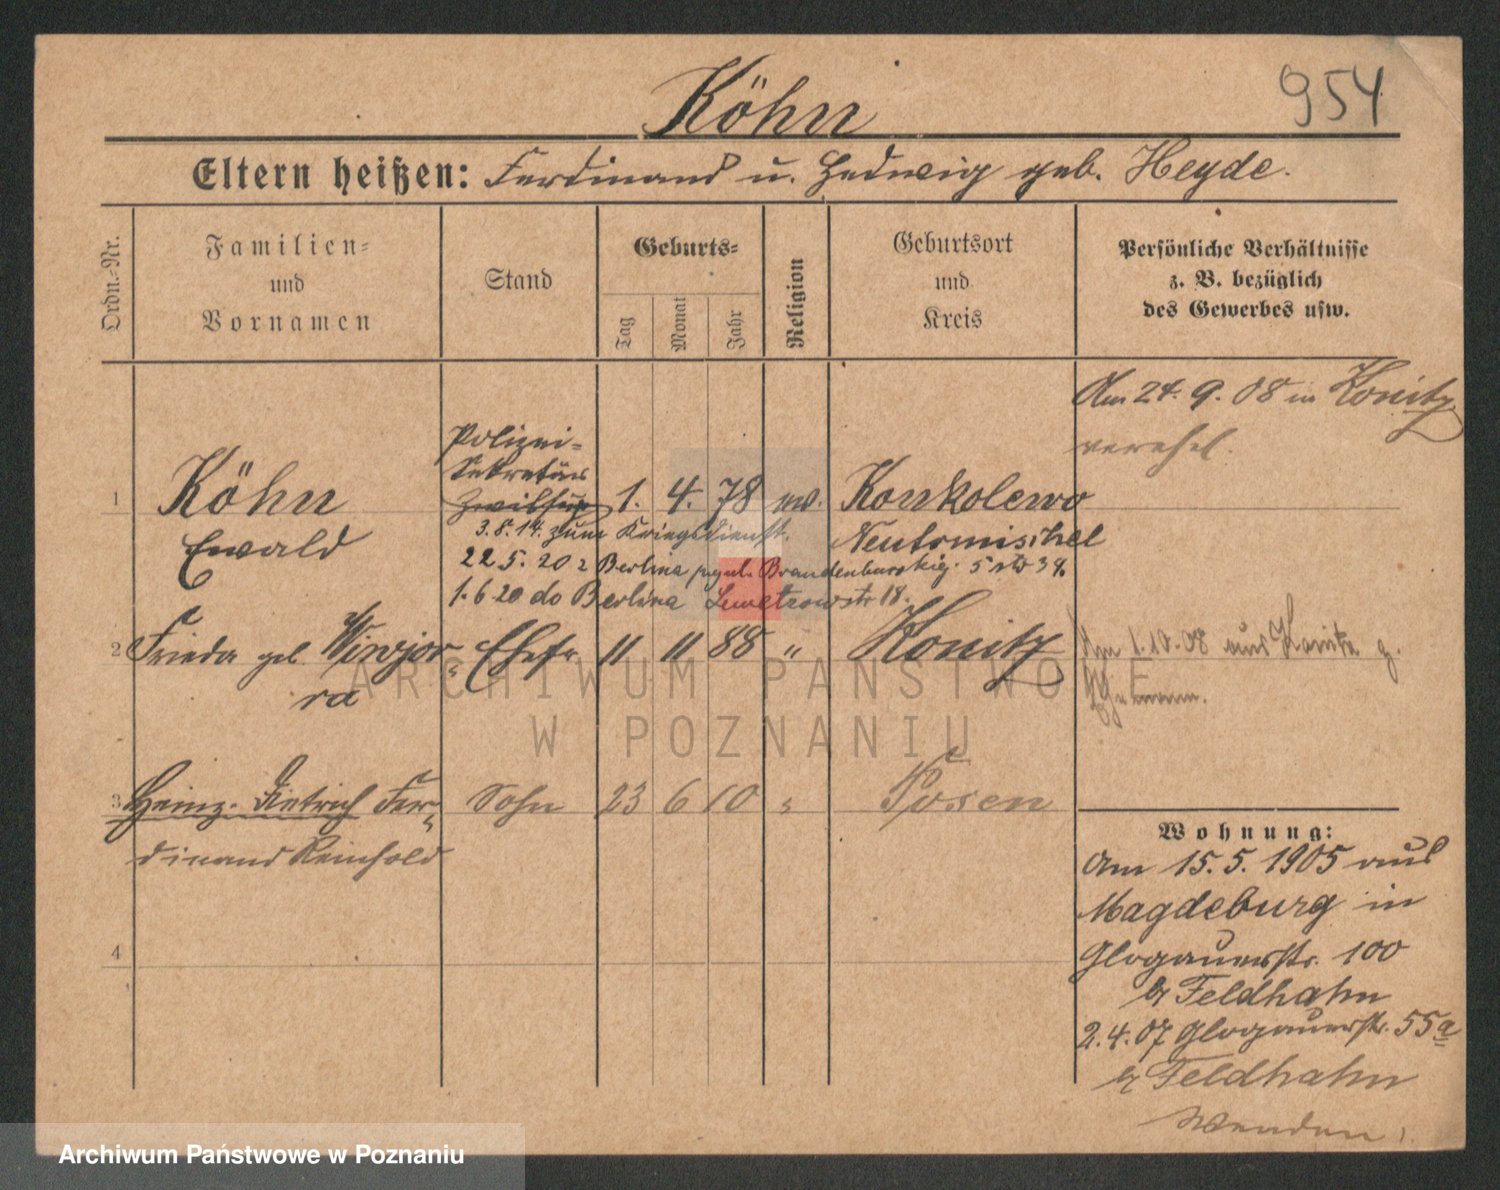 954
Köhn
Eltern heißen: Ferdinand u. Hedwig geb. Heyde.
Ordn.-Nr.
Familien-
und
Vornamen
Stand
Geburts-
Tag
Monat
Jahr
Religion
Geburtsort
und
Kreis
Persönliche Verhältnisse
z. B. bezüglich
des Gewerbes usw.
Am 24. 9. 08 in Konitz
verehel.
Polizei-
Sekretär
1 Köhn 1. 4. 78 ev. Konkolewo
Ewald Neutomischel
3.8.14. zum Kriegsdienst.
22. 5. 20 z Berlina Brandenburskiej 34.
1.6 20 do Berlina 18.
2 Frieda geb. Wirojor- Ehefr. 11 11 88 " Konitz
ra
Am 1.10.08 aus Konitz z.
Ehemann.
3 Heinz-Dietrich Fer- Sohn 23 6 10 " Posen
dinand Reinhold
4
Wohnung:
Am 15. 5. 1905 aus
Magdeburg in
Glogauerstr. 100
b/ Feldhahn
2.4.07 Glogauerstr. 55a
b/ Feldhahn
Wenden!
ARCHIWUM PAŃSTWOWE
W POZNANIU
Archiwum Państwowe w Poznaniu